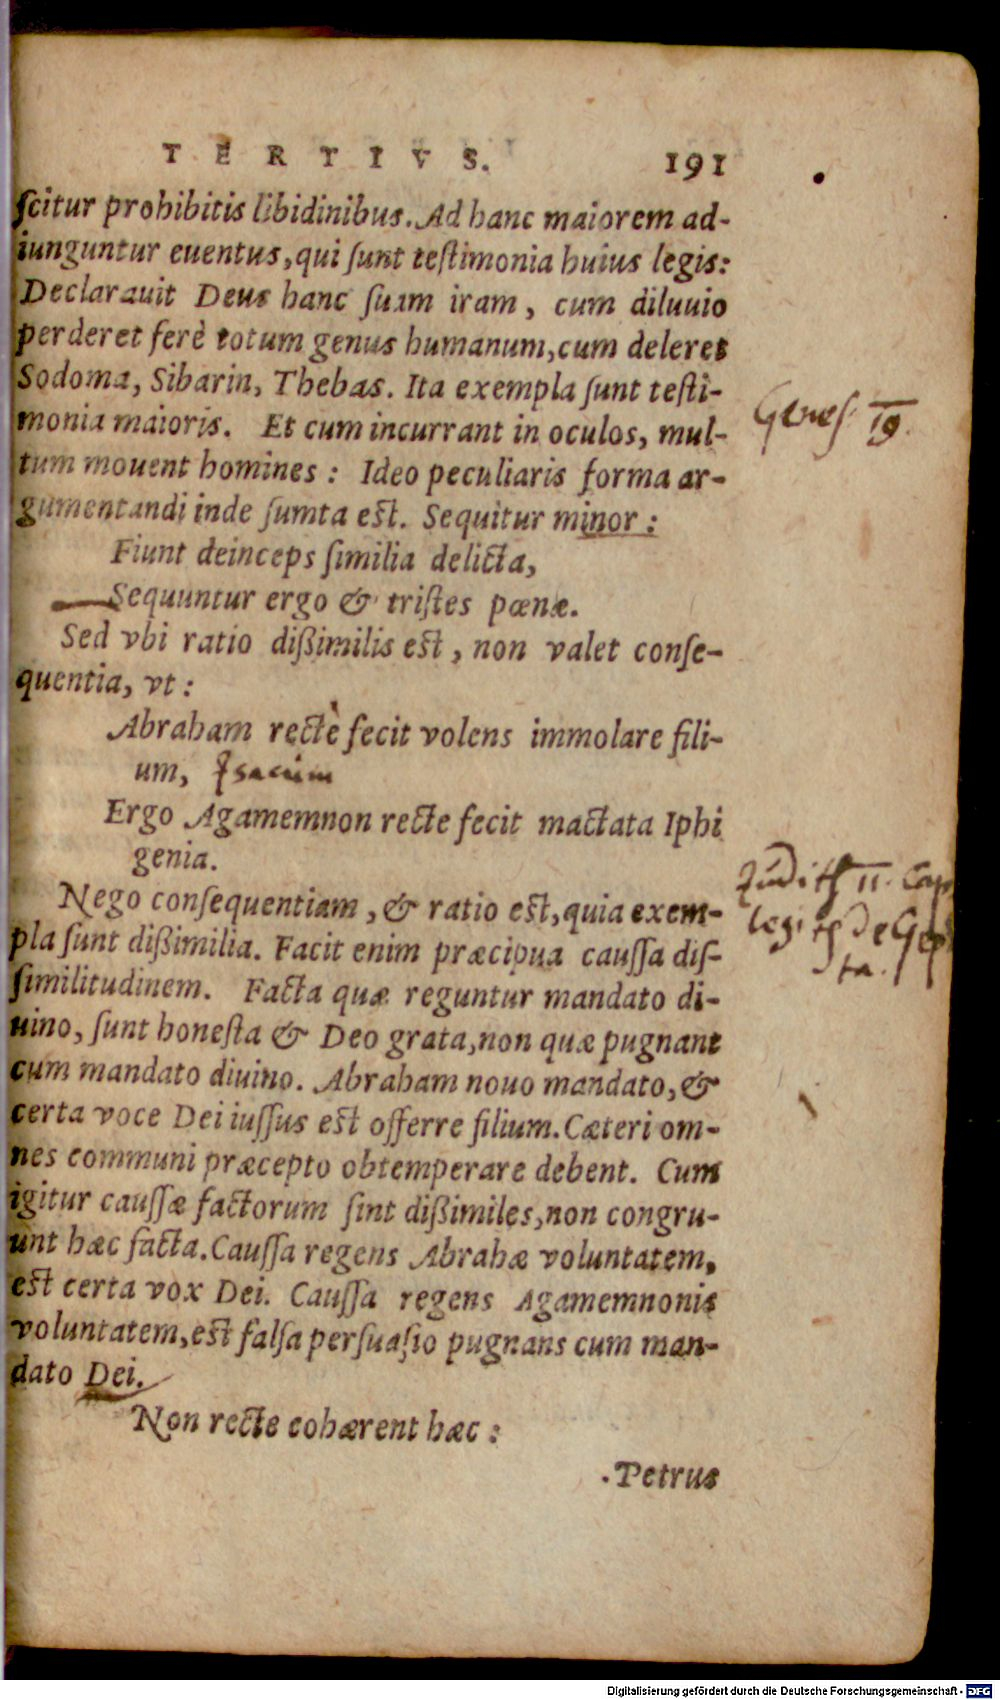 TERTIVS. 191
ſcitur prohibitis libidinibus. Ad hanc maiorem ad-
iunguntur euentus, qui ſunt teſtimonia huius legis:
Declarauit Deus hanc ſuam iram, cum diluuio
perderet ferè totum genus humanum, cum deleret
Sodoma, Sibarin, Thebas. Ita exempla ſunt teſti-
monia maioris. Et cum incurrant in oculos, mul-
Geneſ. 19.
tum mouent homines: Ideo peculiaris forma ar-
gumentandi inde ſumta eſt. Sequitur minor:
Fiunt deinceps ſimilia delicta,
Sequuntur ergo & triſtes pœnæ.
Sed vbi ratio dißimilis eſt, non valet conſe-
quentia, vt:
Abraham rectè fecit volens immolare fili-
um, Isacum
Ergo Agamemnon recte fecit mactata Iphi
genia.
Judith 11. Cap
Nego conſequentiam, & ratio eſt, quia exem-
pla ſunt dißimilia. Facit enim præcipua cauſſa diſ-
ſimilitudinem. Facta quæ reguntur mandato di-
uino, ſunt honeſta & Deo grata, non quæ pugnant
cum mandato diuino. Abraham nouo mandato, &
certa voce Dei iuſſus eſt offerre filium. Cæteri om-
nes communi præcepto obtemperare debent. Cum
igitur cauſſæ factorum ſint dißimiles, non congru-
unt hæc facta. Cauſſa regens Abrahæ voluntatem,
eſt certa vox Dei. Cauſſa regens Agamemnonis
voluntatem, eſt falſa perſuaſio pugnans cum man-
dato Dei.
Non recte cohærent hæc:
Petrus
Digitalisierung gefördert durch die Deutsche Forschungsgemeinschaft - DFG